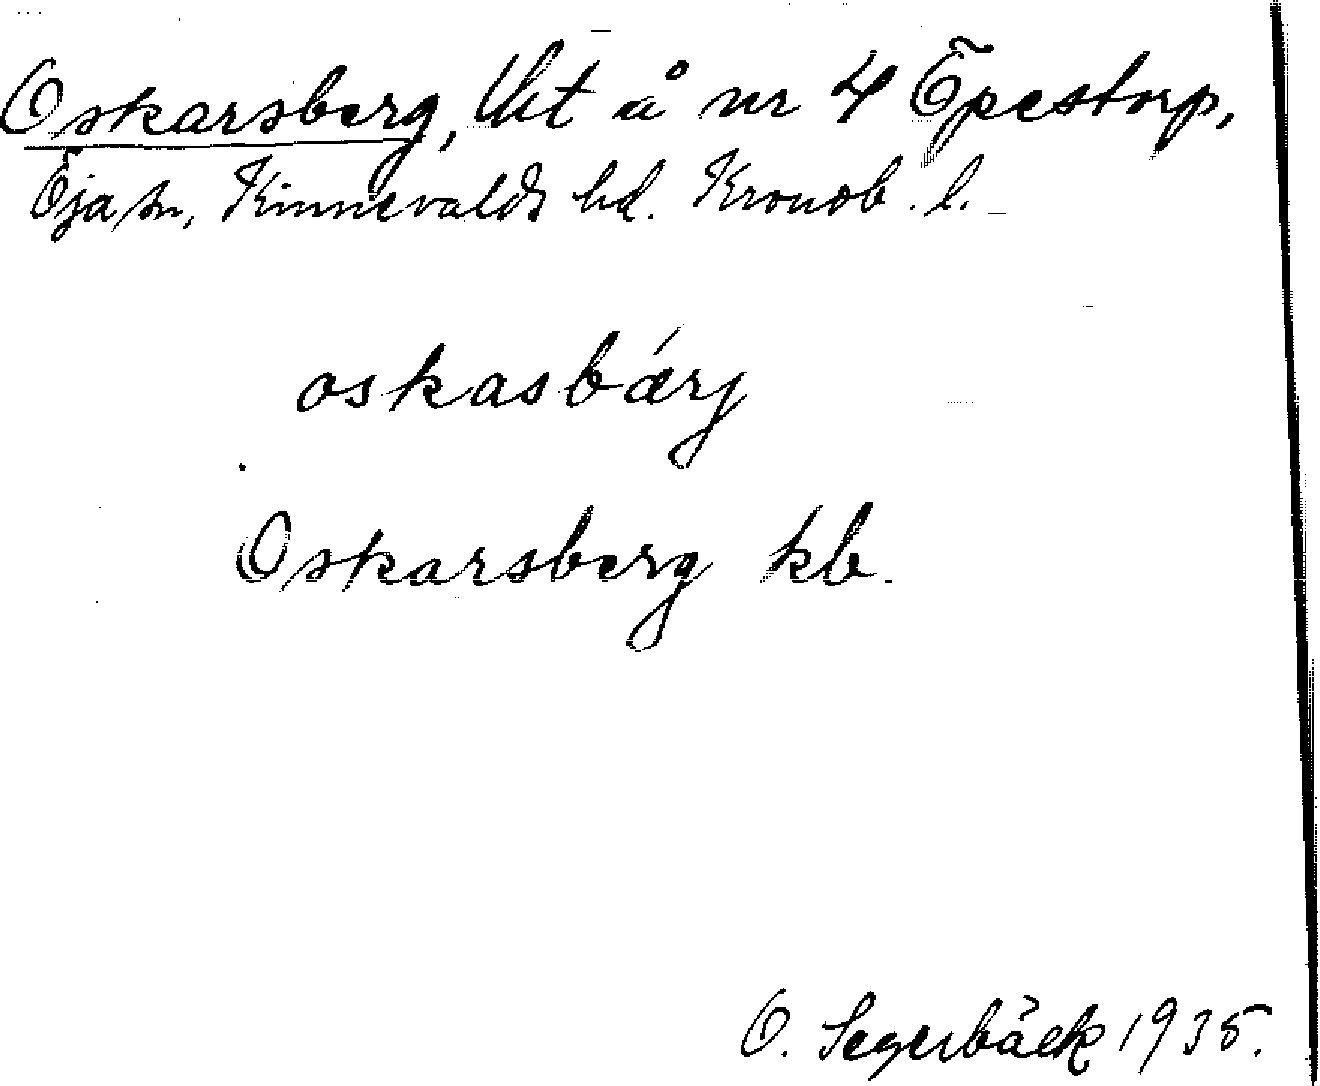 Oskarsberg, lht å nr 4 Öpestorp,
Öja sn, Kinnevalds hd. Kronob. l.
oskasbárj
Oskarsberg kb.
O. Segerbäck 1935.